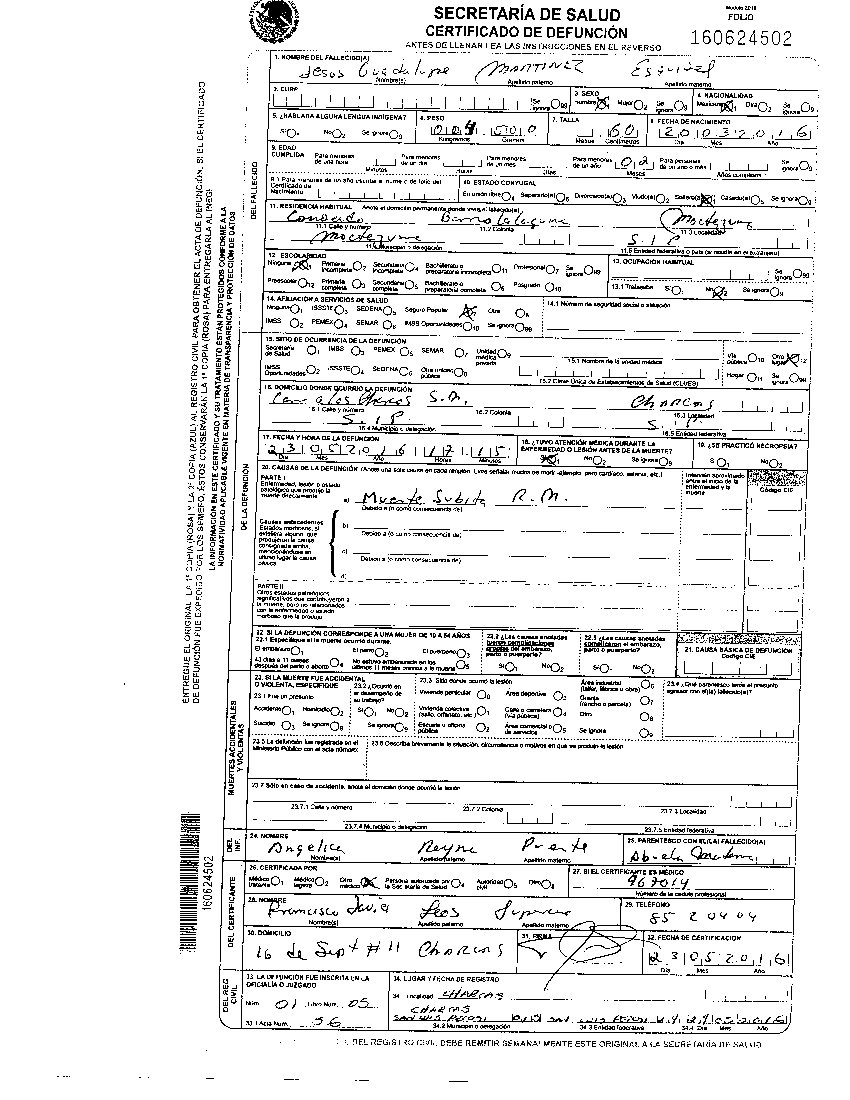 SECRETARÍA DE SALUD
CERTIFICADO DE DEFUNCIÓN
ANTES DE LLENAR LEA LAS INSTRUCCIONES EN EL REVERSO
Modelo 2016
FOLIO
160624502
1. NOMBRE DEL FALLECIDO(A)
Jesus Guadalupe MARTINEZ Esquivel
Nombre(s) Apellido paterno Apellido materno
2. CURP
3. SEXO
Hombre Mujer 2 Se ignora 9
4. NACIONALIDAD
Mexicana Otra 2 Se ignora 9
5. ¿HABLABA ALGUNA LENGUA INDÍGENA?
Sí No 2 Se ignora 9
6. PESO
004 500
Kilogramos Gramos
7. TALLA
60
Metros Centímetros
8. FECHA DE NACIMIENTO
20 03 2016
Día Mes Año
9. EDAD CUMPLIDA
Para menores de una hora Minutos
Para menores de un día Horas
Para menores de un mes Días
Para menores de un año 02 Meses
Para personas de un año o más Años cumplidos
Se ignora 9
10. ESTADO CONYUGAL
En unión libre 4 Separado(a) 6 Divorciado(a) 3 Viudo(a) 2 Soltero(a) 1 Casado(a) 5 Se ignora 9
11. RESIDENCIA HABITUAL Anote el domicilio permanente donde vivía el fallecido(a)
Conocido Moctezuma
11.1 Calle y número 11.2 Colonia 11.3 Localidad
Moctezuma S.L.P
11.4 Municipio o delegación 11.5 Entidad federativa o país (si residía en el extranjero)
12. ESCOLARIDAD
Ninguna 1 Primaria incompleta 2 Secundaria incompleta 4 Bachillerato o preparatoria incompleta 11 Profesional 7 Se ignora 99
Preescolar 12 Primaria completa 3 Secundaria completa 5 Bachillerato o preparatoria completa 6 Posgrado 10
13. OCUPACIÓN HABITUAL
13.1 Trabajaba Sí 1 No 2 Se ignora 9
14. AFILIACIÓN A SERVICIOS DE SALUD
Ninguna 1 ISSSTE 3 SEDENA 5 Seguro Popular Otra 8
IMSS 2 PEMEX 4 SEMAR 6 IMSS Oportunidades 10 Se ignora 99
14.1 Número de seguridad social o afiliación
15. SITIO DE OCURRENCIA DE LA DEFUNCIÓN
Secretaría de Salud 1 IMSS 3 PEMEX 5 SEMAR 7 Unidad médica privada 9
15.1 Nombre de la unidad médica
Vía pública 10 Otro lugar 12
IMSS Oportunidades 2 ISSSTE 4 SEDENA 6 Otra unidad pública
15.2 Clave Única de Establecimientos de Salud (CLUES)
Hogar 11 Se ignora 99
16. DOMICILIO DONDE OCURRIÓ LA DEFUNCIÓN
CHARCAS
16.1 Calle y número 16.2 Colonia 16.3 Localidad
S.L.P S.L.P
16.4 Municipio o delegación 16.5 Entidad federativa
17. FECHA Y HORA DE LA DEFUNCIÓN
23 05 2016 17 15
Día Mes Año Horas Minutos
18. ¿TUVO ATENCIÓN MÉDICA DURANTE LA ENFERMEDAD O LESIÓN ANTES DE LA MUERTE?
No 2 Se ignora 9
19. ¿SE PRACTICÓ NECROPSIA?
Sí 1 No 2
20. CAUSAS DE LA DEFUNCIÓN
PARTE I
Enfermedad, lesión o estado patológico que produjo la muerte directamente
a) Muerte Subita R.M.
Debido a (o como consecuencia de)
Intervalo aproximado entre el inicio de la enfermedad y la muerte
Código CIE
Causas antecedentes
b)
Debido a (o como consecuencia de)
c)
Debido a (o como consecuencia de)
d)
PARTE II
Otros estados patológicos significativos que contribuyeron a la muerte, pero no relacionados con la enfermedad o estado morboso que la produjo
22. SI LA DEFUNCIÓN CORRESPONDE A UNA MUJER DE 10 A 54 AÑOS
22.1 Especifique si la muerte ocurrió durante:
El embarazo 1 El parto 2 El puerperio 3
43 días a 11 meses después del parto o aborto 4 No estuvo embarazada en los últimos 11 meses previos a la muerte 5
22.2 ¿Las causas anotadas fueron complicaciones propias del embarazo, parto o puerperio?
Sí 1 No 2
22.3 ¿Las causas anotadas complicaron el embarazo, parto o puerperio?
Sí No 2
21. CAUSA BÁSICA DE DEFUNCIÓN
Código CIE
23. SI LA MUERTE FUE ACCIDENTAL O VIOLENTA, ESPECIFIQUE
23.1 Fue un presunto
Accidente 1 Homicidio 2 Suicidio 3 Se ignora 9
23.2 ¿Ocurrió en el desempeño de su trabajo?
Sí 1 No 2 Se ignora 9
23.3 Sitio donde ocurrió la lesión
Vivienda particular 0 Área deportiva 3 Área industrial (taller, fábrica u obra) 6
Vivienda colectiva (asilo, orfanato, etc.) 1 Calle o carretera (vía pública) 4 Granja (rancho o parcela) 7
Escuela u oficina pública 2 Área comercial o de servicios 5 Otro 8 Se ignora 9
23.4 ¿Qué parentesco tenía el presunto agresor con el(la) fallecido(a)?
23.5 La defunción fue registrada en el Ministerio Público con el acta número:
23.6 Describa brevemente la situación, circunstancia o motivos en que se produjo la lesión
23.7 Sólo en caso de accidente, anote el domicilio donde ocurrió la lesión
23.7.1 Calle y número 23.7.2 Colonia 23.7.3 Localidad
23.7.4 Municipio o delegación 23.7.5 Entidad federativa
24. NOMBRE
Angelica Reyna Puente
Nombre(s) Apellido paterno Apellido materno
25. PARENTESCO CON EL(LA) FALLECIDO(A)
Abuela Materna
26. CERTIFICADA POR
Médico tratante 1 Médico legista 2 Otro médico Persona autorizada por la Secretaría de Salud 4 Autoridad civil 5 Otro 8
27. SI EL CERTIFICANTE ES MÉDICO
967014
Número de la cédula profesional
28. NOMBRE
Francisco Javier Leos
Nombre(s) Apellido paterno Apellido materno
29. TELÉFONO
85 20404
30. DOMICILIO
16 de Sept #11 CHARCAS
31. FIRMA
32. FECHA DE CERTIFICACIÓN
23 05 2016
Día Mes Año
33. LA DEFUNCIÓN FUE INSCRITA EN LA OFICIALÍA O JUZGADO
Núm. 01 Libro Núm. 05
33.1 Acta Núm. 56
34. LUGAR Y FECHA DE REGISTRO
Localidad CHARCAS
CHARCAS
SAN LUIS POTOSI
34.2 Municipio o delegación 34.3 Entidad federativa 34.4 Día Mes Año
EL REGISTRO CIVIL DEBE REMITIR SEMANALMENTE ESTE ORIGINAL A LA SECRETARÍA DE SALUD
DEL FALLECIDO
DE LA DEFUNCIÓN
MUERTES ACCIDENTALES Y VIOLENTAS
DEL INF.
DEL CERTIFICANTE
DEL REG. CIVIL
LA INFORMACIÓN EN ESTE CERTIFICADO Y SU TRATAMIENTO ESTÁN PROTEGIDOS CONFORME A LA
NORMATIVIDAD APLICABLE VIGENTE EN MATERIA DE TRANSPARENCIA Y PROTECCIÓN DE DATOS
160624502